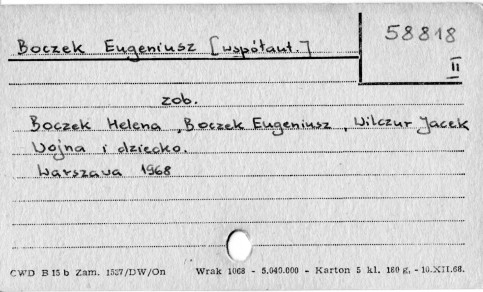 Boczek Eugeniusz [współaut.]
58818
II
zob.
Boczek Helena, Boczek Eugeniusz, Wilczur Jacek
Wojna i dziecko.
Warszawa 1968
CWD B 15 b Zam. 1537/DW/On Wrak 1068 - 5.040.000 - Karton 5 kl. 180 g, - 10.XII.66.